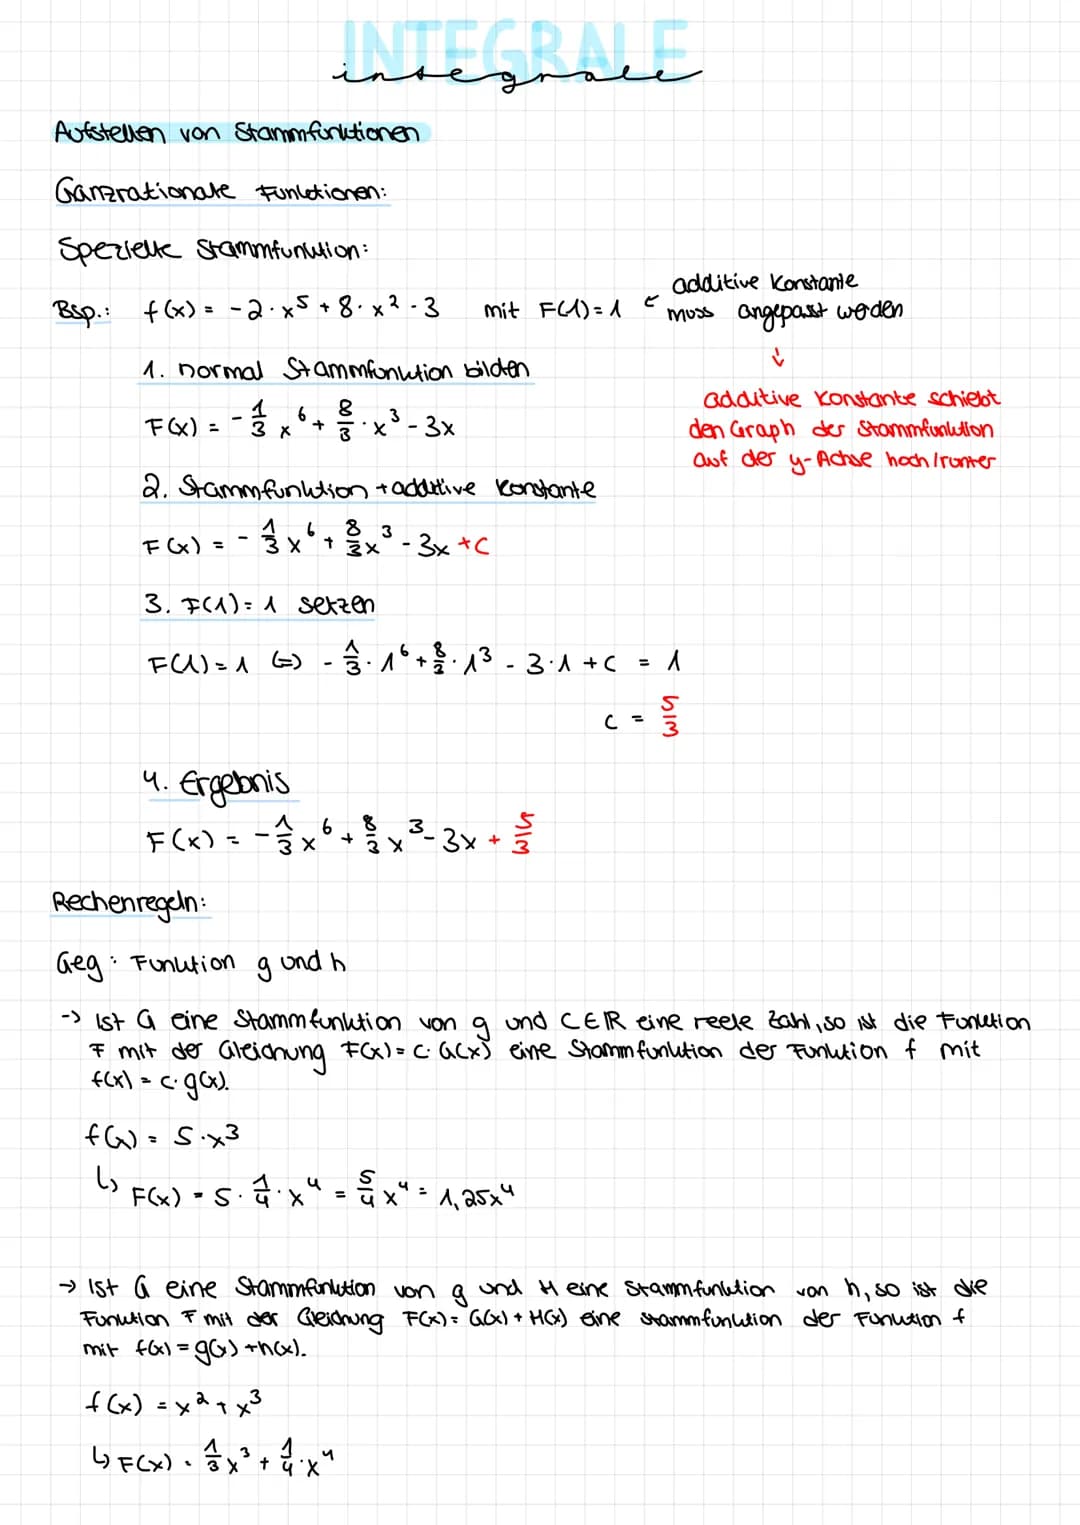 INTEGRALE
integrale
Aufstellen von Stammfunktionen
Ganzrationale Funktionen:
Spezielle Stammfunktion:
Bsp.: f(x) = -2·x⁵ + 8·x² - 3 mit F(1)=1 ← additive Konstante
muss angepasst werden
↓
additive Konstante schiebt
den Graph der Stammfunktion
auf der y-Achse hoch/runter
1. normal Stammfunktion bilden
F(x) = -1/3 x⁶ + 8/3·x³ - 3x
2. Stammfunktion + additive Konstante
F(x) = -1/3 x⁶ + 8/3 x³ - 3x +C
3. F(1)=1 setzen
F(1)=1 (=) -1/3·1⁶ + 8/3·1³ - 3·1 + C = 1
C = 5/3
4. Ergebnis
F(x) = -1/3 x⁶ + 8/3 x³ - 3x + 5/3
Rechenregeln:
Geg: Funktion g und h
-> Ist G eine Stammfunktion von g und C∈ℝ eine reele Zahl, so ist die Funktion
F mit der Gleichung F(x) = C·G(x) eine Stammfunktion der Funktion f mit
f(x) = c·g(x).
f(x) = 5·x³
↳ F(x) = 5·1/4·x⁴ = 5/4 x⁴ = 1,25x⁴
→ Ist G eine Stammfunktion von g und H eine Stammfunktion von h, so ist die
Funktion F mit der Gleichung F(x) = G(x) + H(x) eine Stammfunktion der Funktion f
mit f(x) = g(x) + h(x).
f(x) = x² + x³
↳ F(x) = 1/3 x³ + 1/4·x⁴